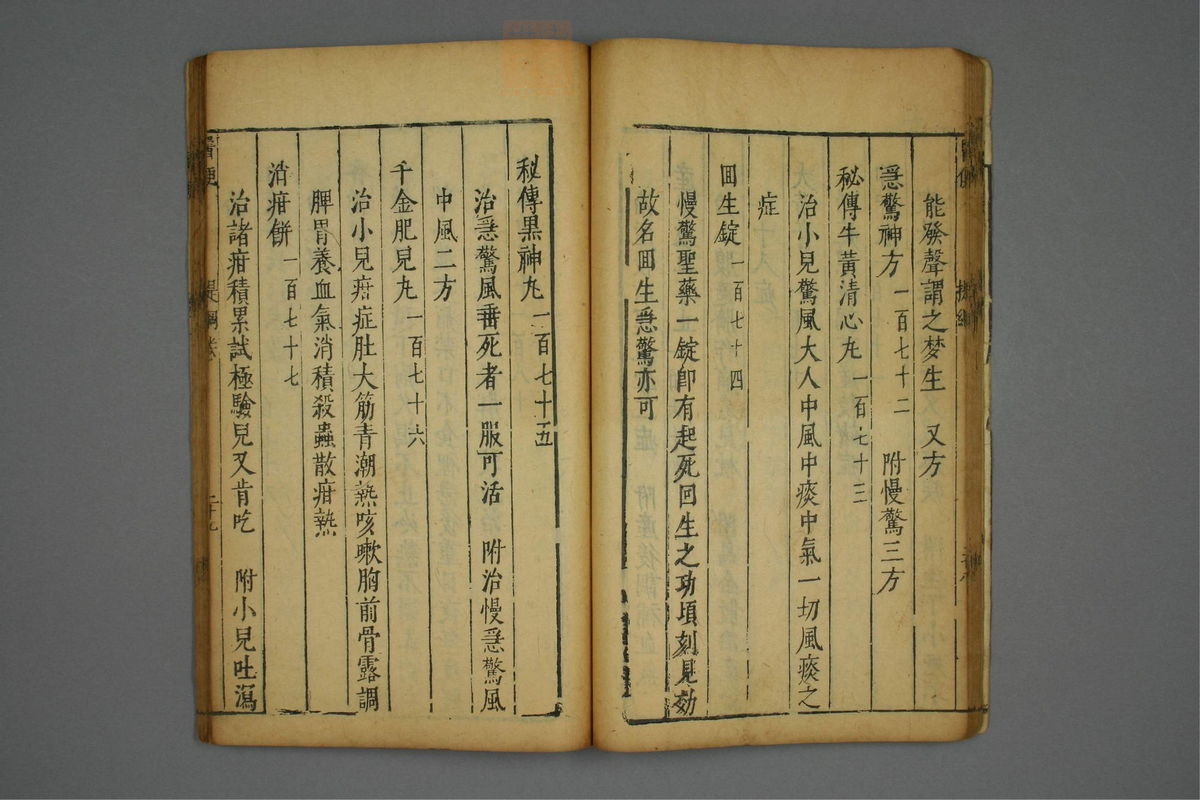 能發聲謂之梦生　又方
急驚神方　一百七十二　附慢驚三方
秘傳牛黃清心丸　一百七十三
治小兒驚風大人中風中痰中氣一切風痰之
症
囬生錠　一百七十四
慢驚聖藥一錠卽有起死回生之功頃刻見効
故名囬生急驚亦可
秘傳黑神丸　一百七十五
治急驚風垂死者一服可活　附治慢急驚風
中風二方
千金肥兒丸　一百七十六
治小兒疳症肚大筋青潮熱咳嗽胸前骨露調
脾胃養血氣消積殺蟲散疳熱
消疳餅　一百七十七
治諸疳積累試極驗兒又肯吃　附小兒吐瀉